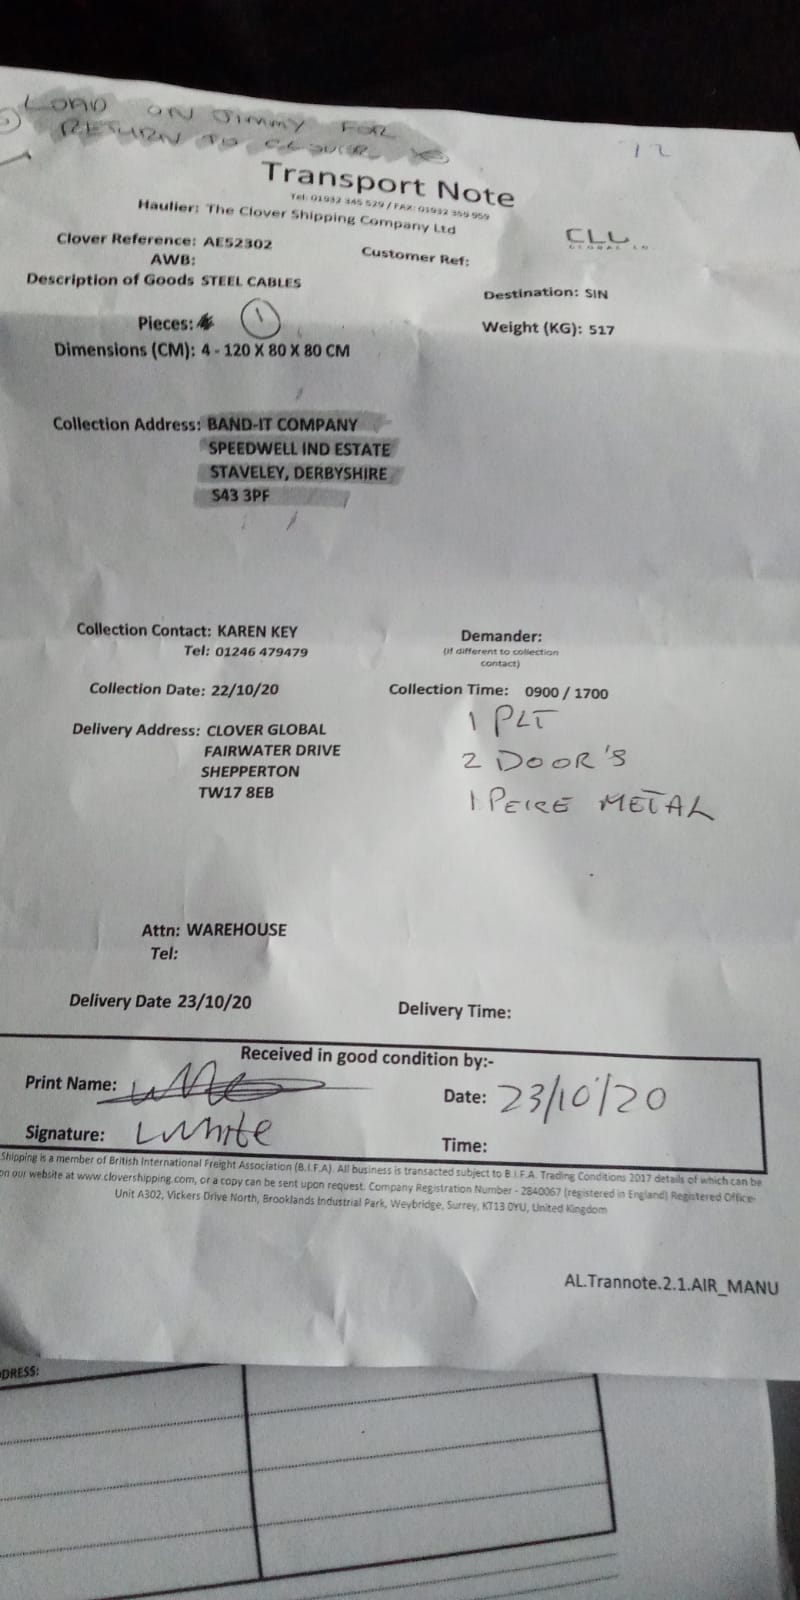 LOAD ON JIMMY FOR
RETURN TO CLOVER
12
Transport Note
Tel: 01932 345 529 / FAX: 01932 359 959
Haulier: The Clover Shipping Company Ltd
Clover Reference: AE52302
Customer Ref:
AWB:
Description of Goods STEEL CABLES
Destination: SIN
Pieces: 1
Weight (KG): 517
Dimensions (CM): 4 - 120 X 80 X 80 CM
Collection Address: BAND-IT COMPANY
SPEEDWELL IND ESTATE
STAVELEY, DERBYSHIRE
S43 3PF
Collection Contact: KAREN KEY
Demander:
Tel: 01246 479479
(if different to collection
contact)
Collection Date: 22/10/20
Collection Time: 0900 / 1700
1 PLT
Delivery Address: CLOVER GLOBAL
FAIRWATER DRIVE
2 DOOR'S
SHEPPERTON
TW17 8EB
1 PEICE METAL
Attn: WAREHOUSE
Tel:
Delivery Date 23/10/20
Delivery Time:
Received in good condition by:-
Print Name:
Date: 23/10/20
Signature: LWhite
Time:
Shipping is a member of British International Freight Association (B.I.F.A). All business is transacted subject to B.I.F.A. Trading Conditions 2017 details of which can be
on our website at www.clovershipping.com, or a copy can be sent upon request. Company Registration Number - 2840067 (registered in England) Registered Office-
Unit A302, Vickers Drive North, Brooklands Industrial Park, Weybridge, Surrey, KT13 0YU, United Kingdom
AL.Trannote.2.1.AIR_MANU
DRESS: